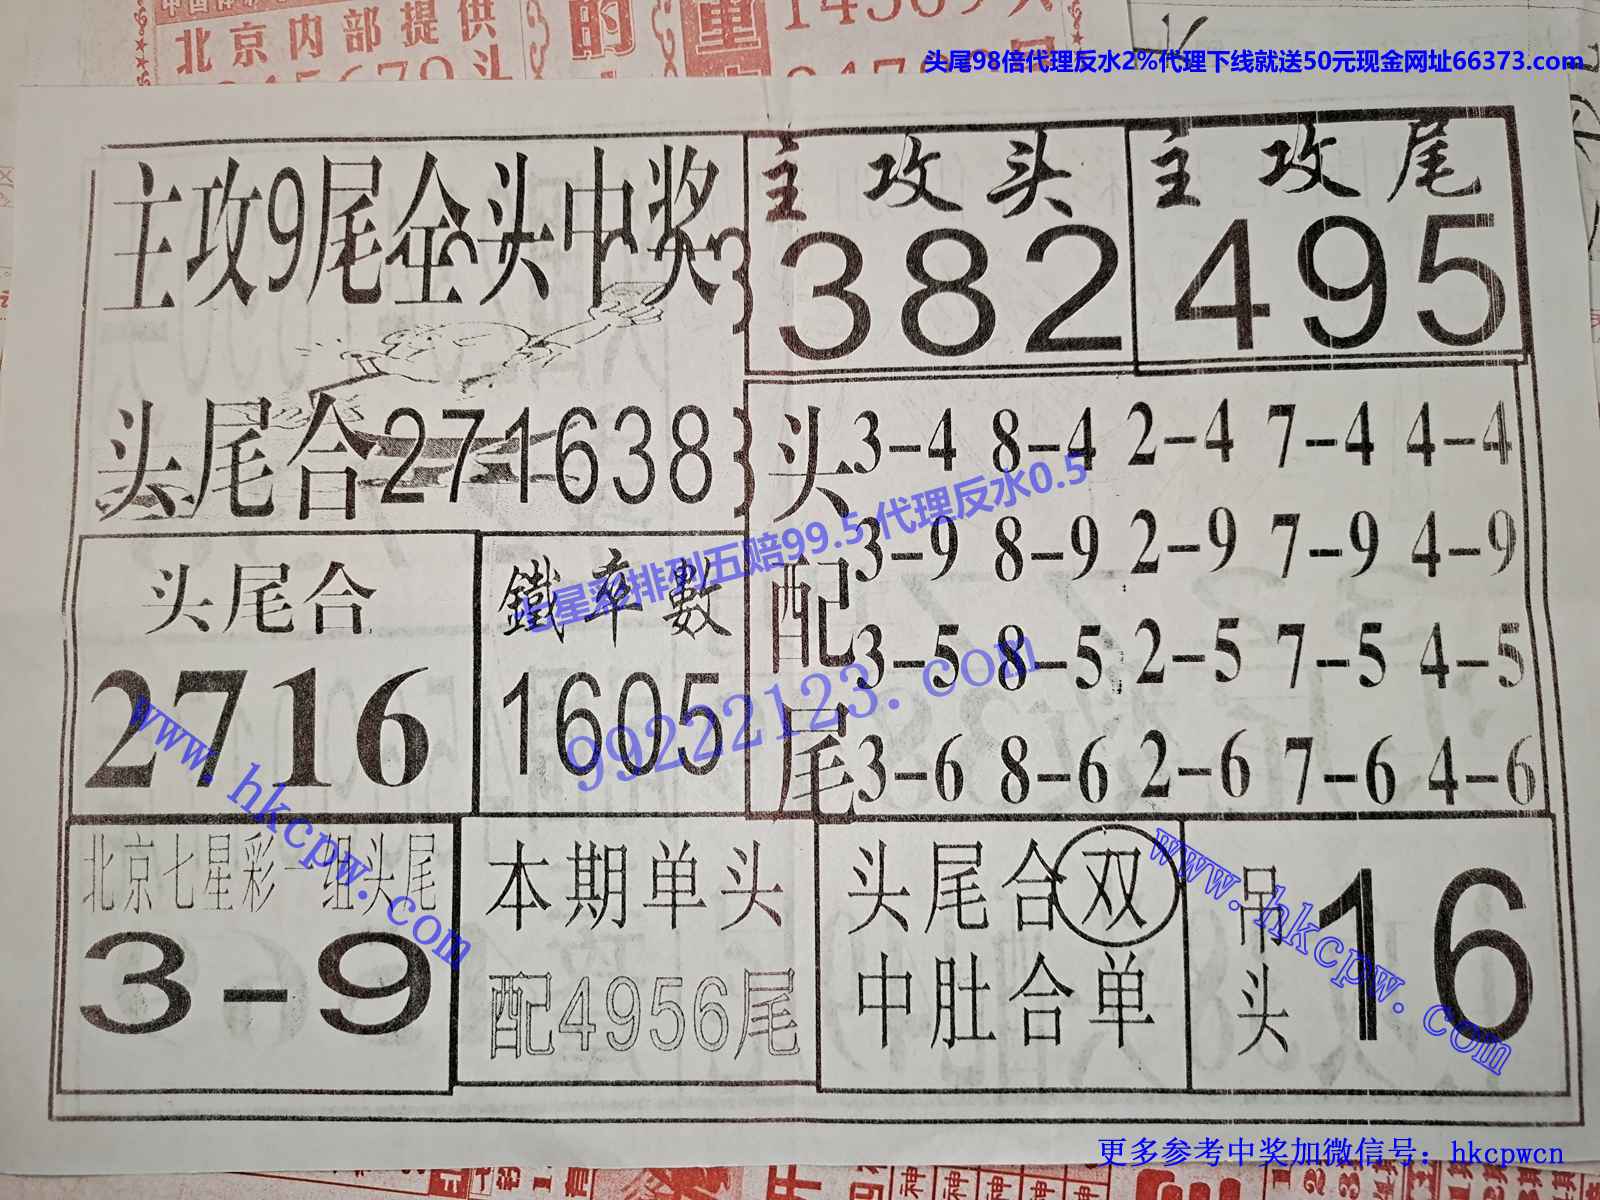 北京内部提供
的
重
14569头
头尾98倍代理反水2%代理下线就送50元现金网址66373.com
主攻9尾全头中奖
主攻头
382
主攻尾
495
头尾合271638
头配尾
3-4 8-4 2-4 7-4 4-4
3-9 8-9 2-9 7-9 4-9
3-5 8-5 2-5 7-5 4-5
3-6 8-6 2-6 7-6 4-6
七星彩排列五赔99.5代理反水0.5
头尾合
2716
鐵率數
1605
99222123.com
www.hkcpw.com
北京七星彩一组头尾
3-9
本期单头
配4956尾
头尾合双
中肚合单
吊头
16
www.hkcpw.com
更多参考中奖加微信号：hkcpwcn